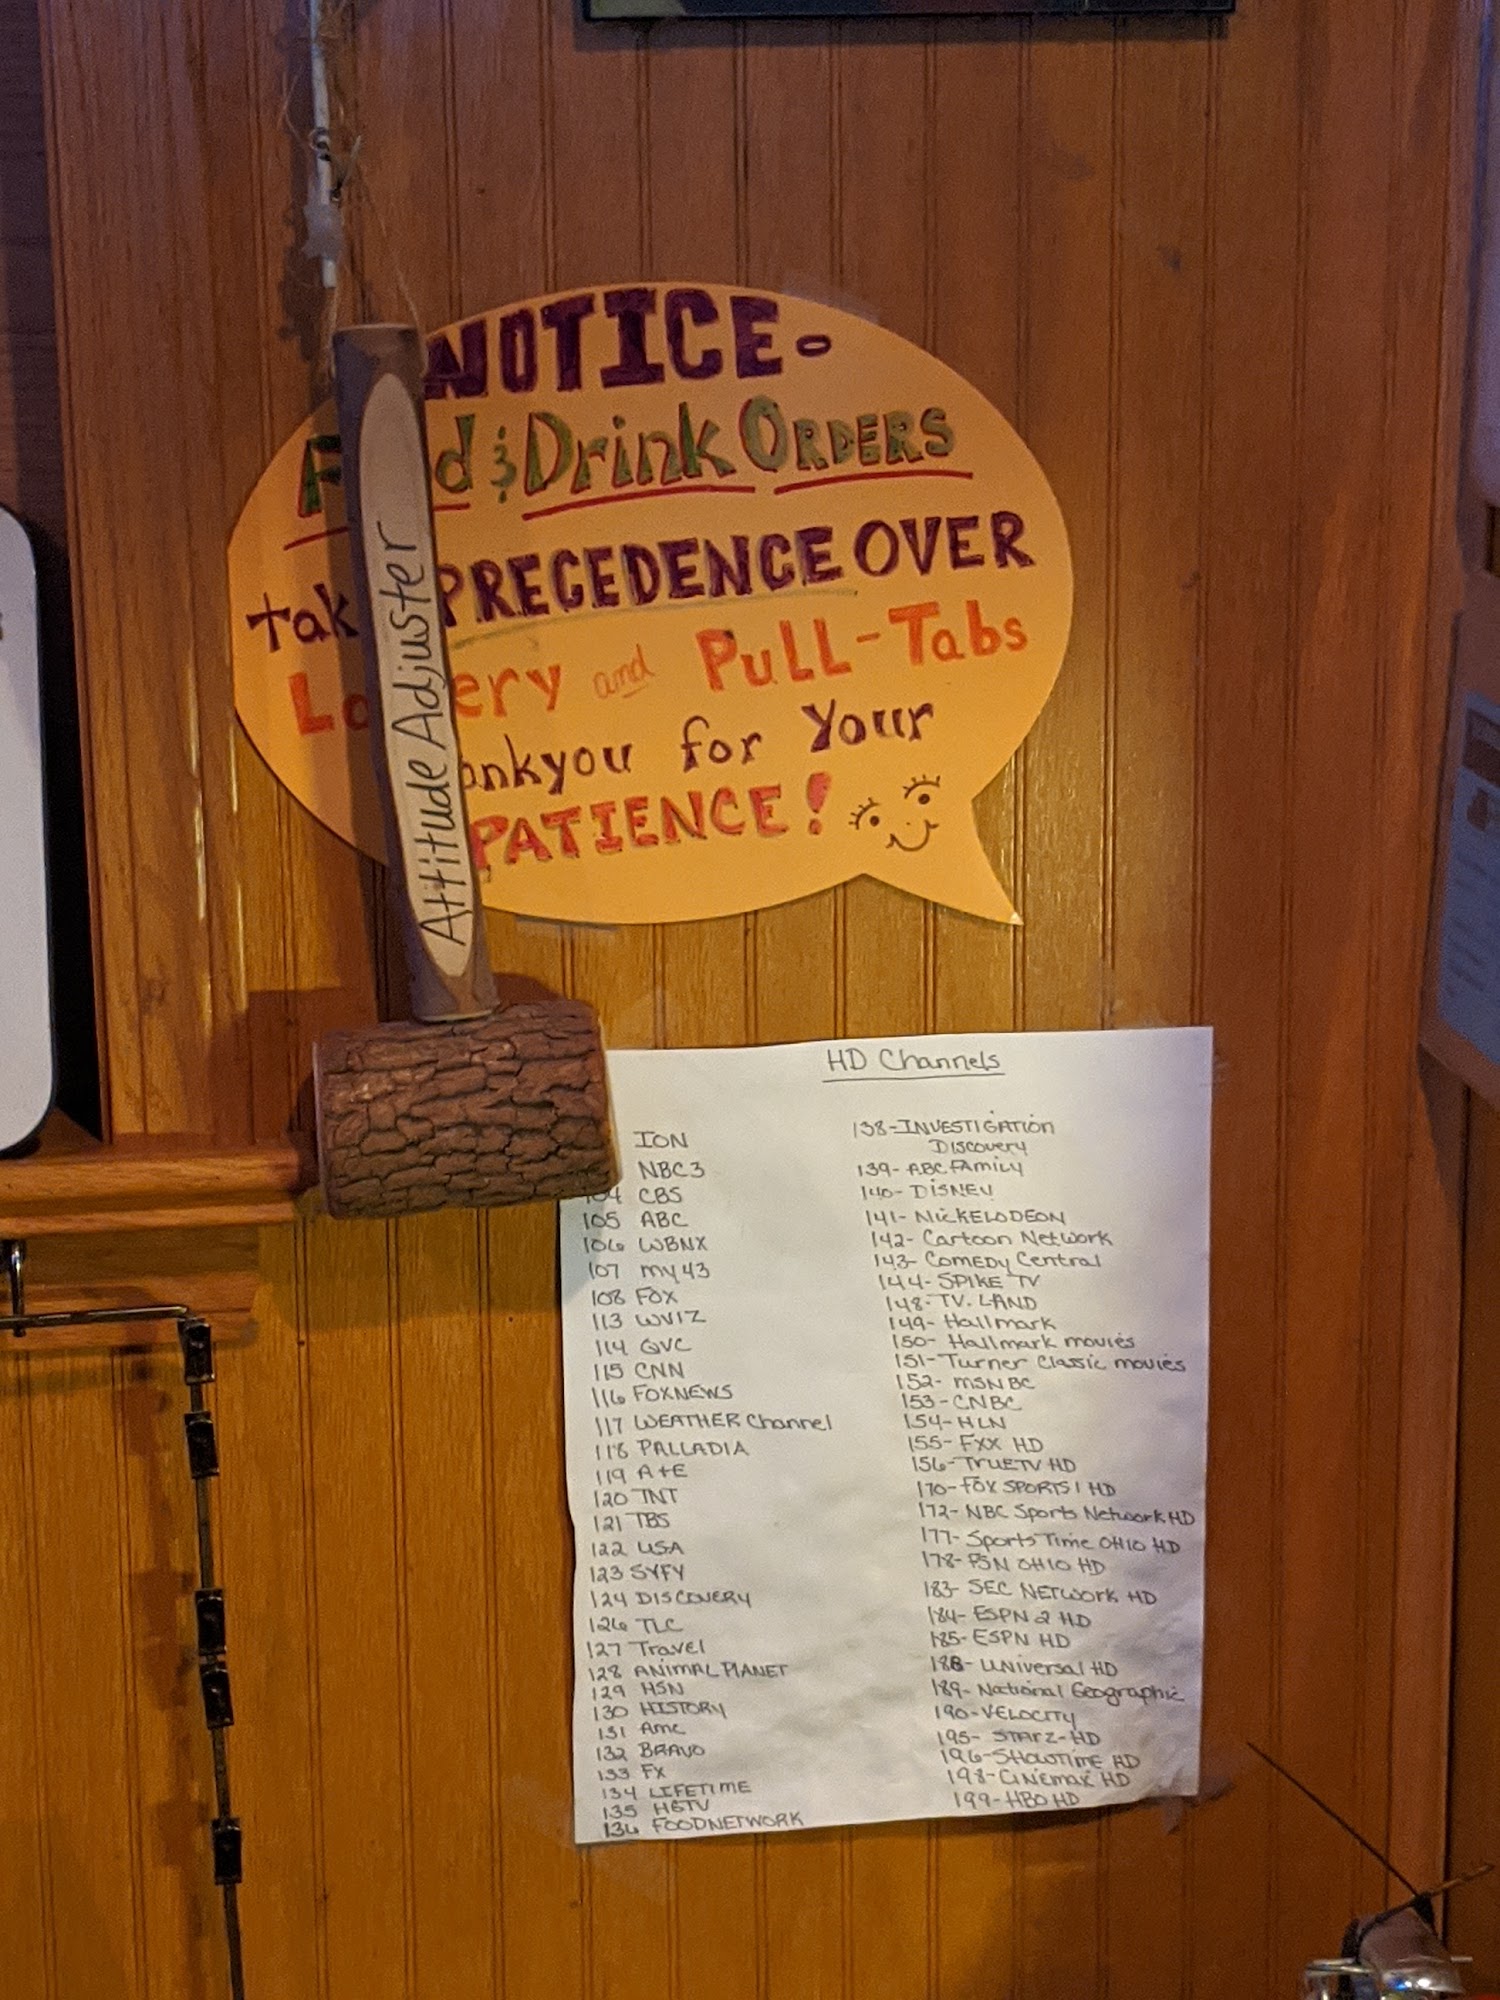 NOTICE-
F d & Drink ORDERS
Tak PRECEDENCE OVER
Lo ery and PULL-Tabs
ankyou for Your
PATIENCE!
Attitude Adjuster
HD Channels
ION
NBC3
104 CBS
105 ABC
106 WBNX
107 my43
108 FOX
113 WVIZ
114 QVC
115 CNN
116 FOXNEWS
117 WEATHER Channel
118 PALLADIA
119 A+E
120 TNT
121 TBS
122 USA
123 SYFY
124 DISCOVERY
126 TLC
127 Travel
128 ANIMAL PLANET
129 HSN
130 HISTORY
131 Amc
132 BRAVO
133 FX
134 LIFETIME
135 HGTV
136 FOODNETWORK
138-INVESTIGATION
DISCOVERY
139-ABC FAMILY
140-DISNEY
141-NICKELODEON
142-Cartoon Network
143-COMEDY Central
144-SPIKE TV
148-TV. LAND
149-Hallmark
150-Hallmark movies
151-Turner Classic movies
152-MSNBC
153-CNBC
154-HLN
155-FXX HD
156-TRUETV HD
170-FOX SPORTS1 HD
172-NBC Sports Network HD
177-Sports Time OHIO HD
178-FSN OHIO HD
183-SEC NETWORK HD
184-ESPN 2 HD
185-ESPN HD
188-UNIVersal HD
189-National Geographic
190-VELOCITY
195-STARZ-HD
196-SHOWTIME HD
198-CINEMAX HD
199-HBO HD